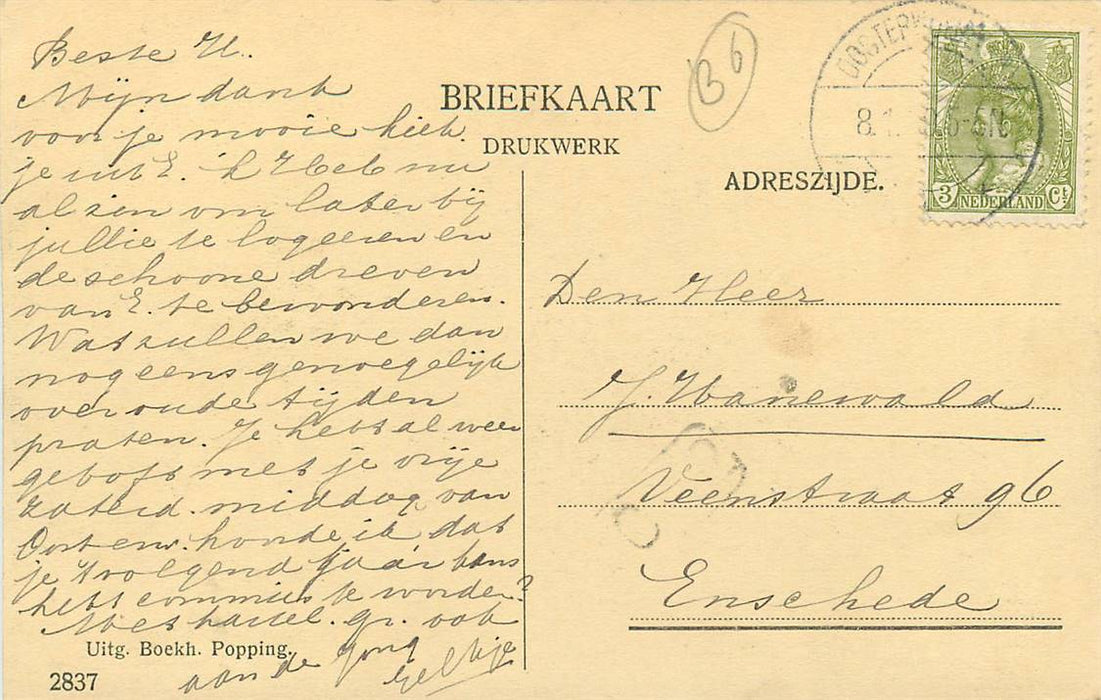 Beste H.
Mijn dank
voor je mooie kiek
je uit E. 'k Heb nu
al zin om later bij
jullie te logeeren en
de schoone dreven
van E. te bewonderen.
Wat zullen we dan
nog eens genoegelijk
over oude tijden
praten. Je hebt al weer
geboft met je vrije
zaterd. middag van
Oosterw. hoorde ik dat
je 't volgend jaar kans
hebt commies te worden?
Met hartel. gr. ook
aan de jong
BRIEFKAART
DRUKWERK
ADRESZIJDE.
B 6
OOSTERWOLDE
8.1
6-8N
3 NEDERLAND Ct
Den Heer
J. Wanewald
Veenstraat 96
Enschede
Uitg. Boekh. Popping.
2837